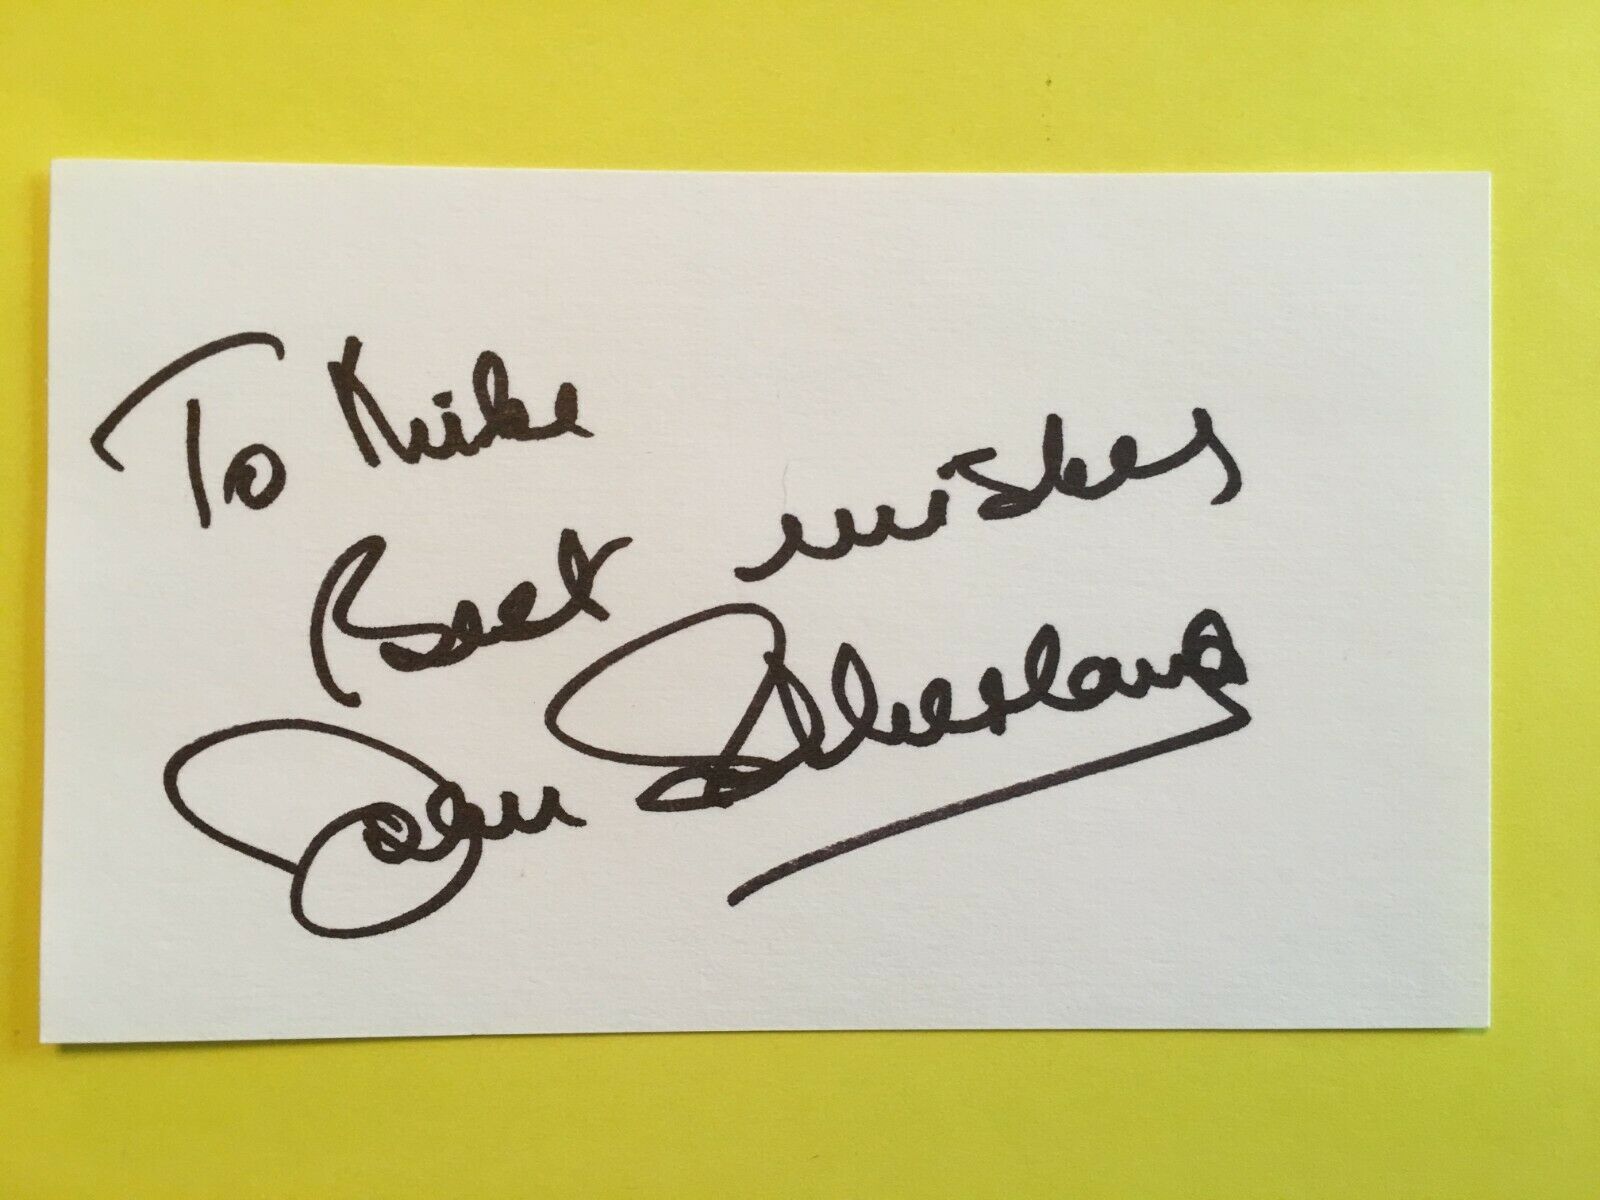 To Mike
Best wishes
Joan Sutherland